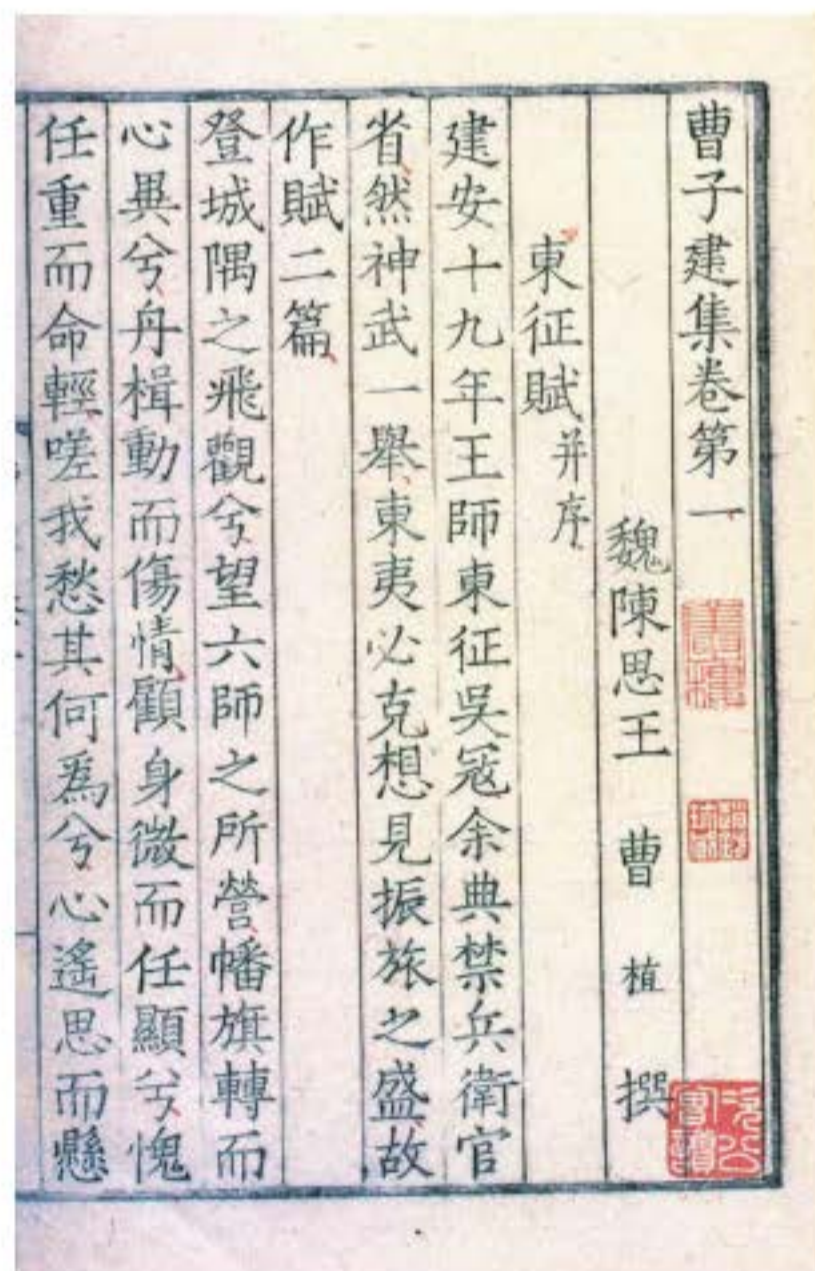 曹子建集卷第一
魏陳思王 曹 植 撰
東征賦并序
建安十九年王師東征吳寇余典禁兵衛官
省然神武一舉東夷必克想見振旅之盛故
作賦二篇
登城隅之飛觀兮望六師之所營幡旗轉而
心異兮舟楫動而傷情顧身微而任顯兮愧
任重而命輕嗟我愁其何爲兮心遙思而懸